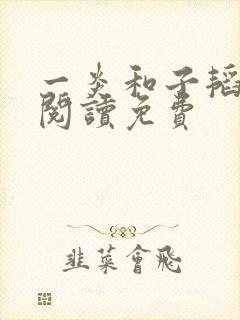 一炎和子韬
閱讀免費
韭菜會飛